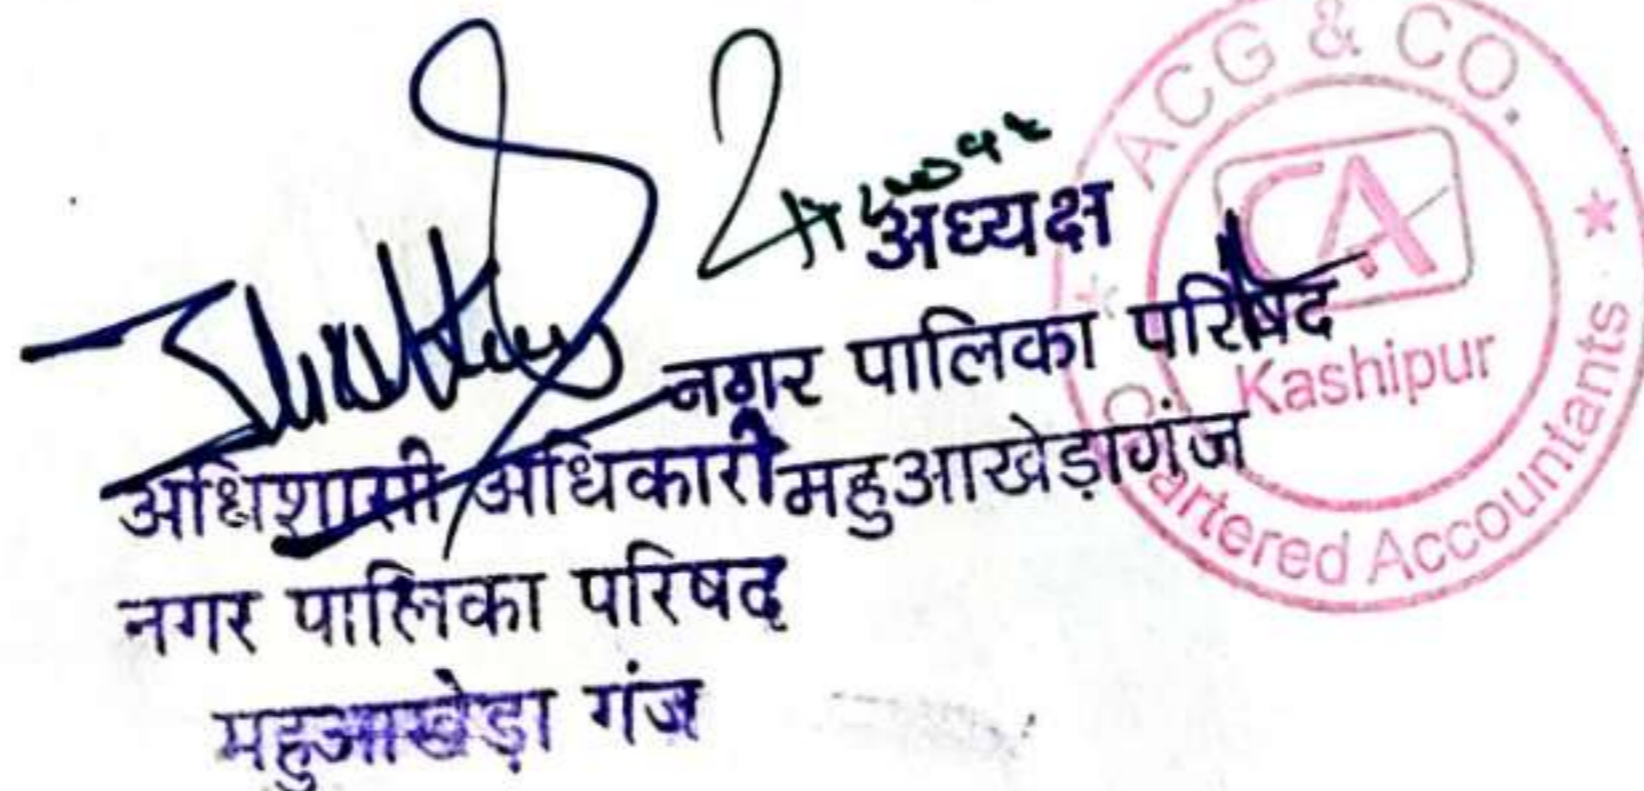 अध्यक्ष
नगर पालिका परिषद
महुआखेड़ागंज
अधिशासी अधिकारी
नगर पालिका परिषद
महुआखेड़ा गंज
ACG & CO.
CA
Kashipur
Chartered Accountants